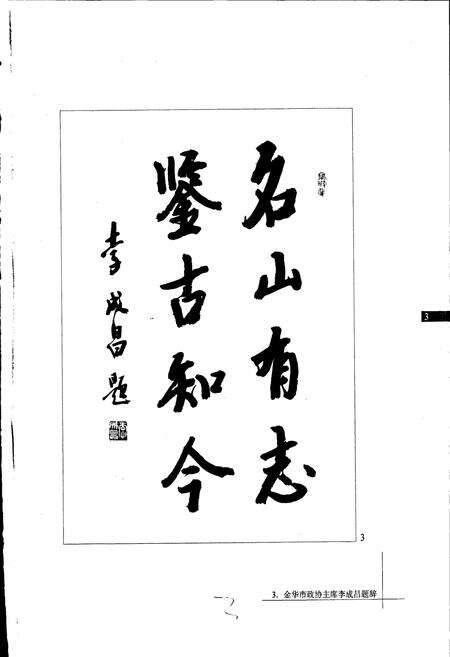 名山有志
鉴古知今
李成昌题
3
3
3. 金华市政协主席李成昌题辞